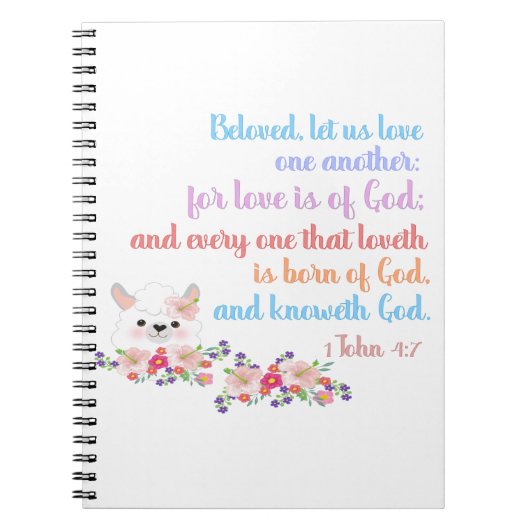 Beloved, let us love
one another:
for love is of God;
and every one that loveth
is born of God,
and knoweth God.
1 John 4:7